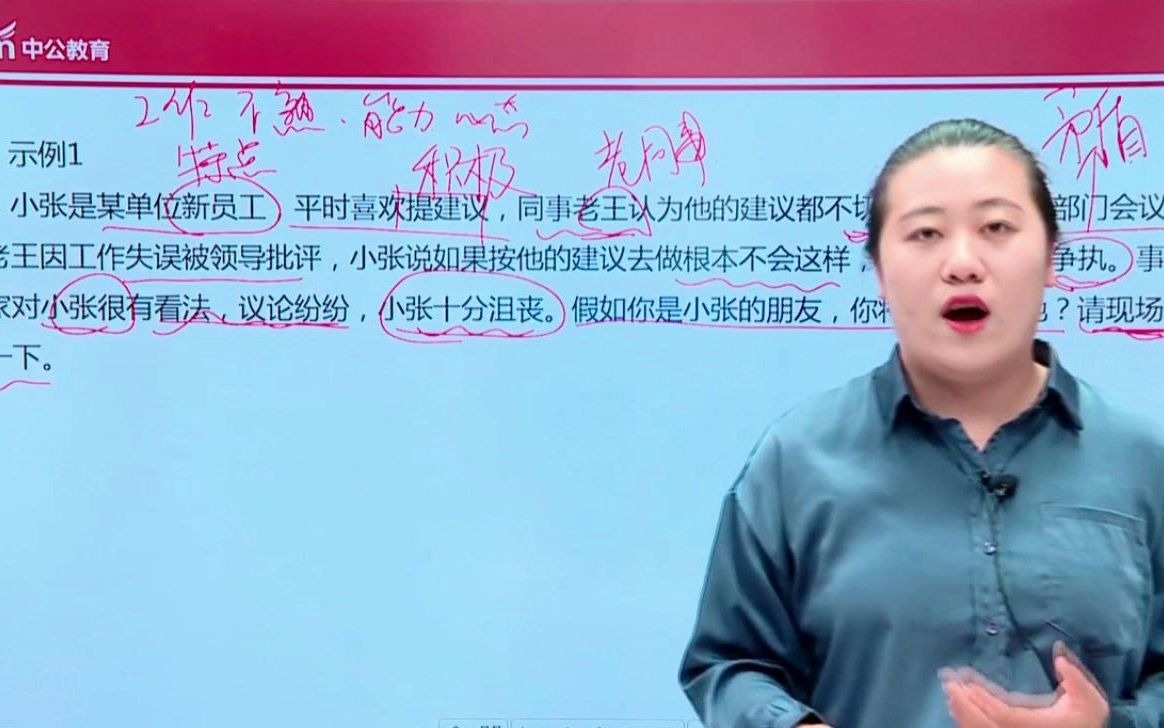 中公教育
工作不熟、能力
特点 积极 老同事
示例1
小张是某单位新员工 平时喜欢提建议，同事老王认为他的建议都不切 部门会议
老王因工作失误被领导批评，小张说如果按他的建议去做根本不会这样， 争执。事
家对小张很有看法，议论纷纷，小张十分沮丧。假如你是小张的朋友，你将 ？请现场
一下。